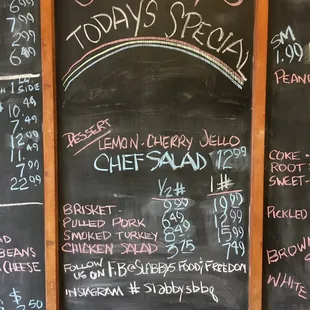 6.99
7.99
2.99
6.49
1 SIDE
10.44
7.49
7.99
12.99
11.99
7.99
22.99
BEANS
CHEESE
$
3.50
TODAYS SPECIAL
DESSERT
LEMON-CHERRY JELLO
CHEF SALAD 12.99
1/2 # 1 #
BRISKET- 9.99 19.99
PULLED PORK 6.49 12.99
SMOKED TURKEY 8.49 15.99
CHICKEN SALAD 3.75 7.49
FOLLOW
US ON F.B @SLABBYS FOOD; FREEDOM
INSTAGRAM # slabbysbbq
SM
1.99
PEANU
COKE
ROOT
SWEET
PICKLED
BROWN
WHITE